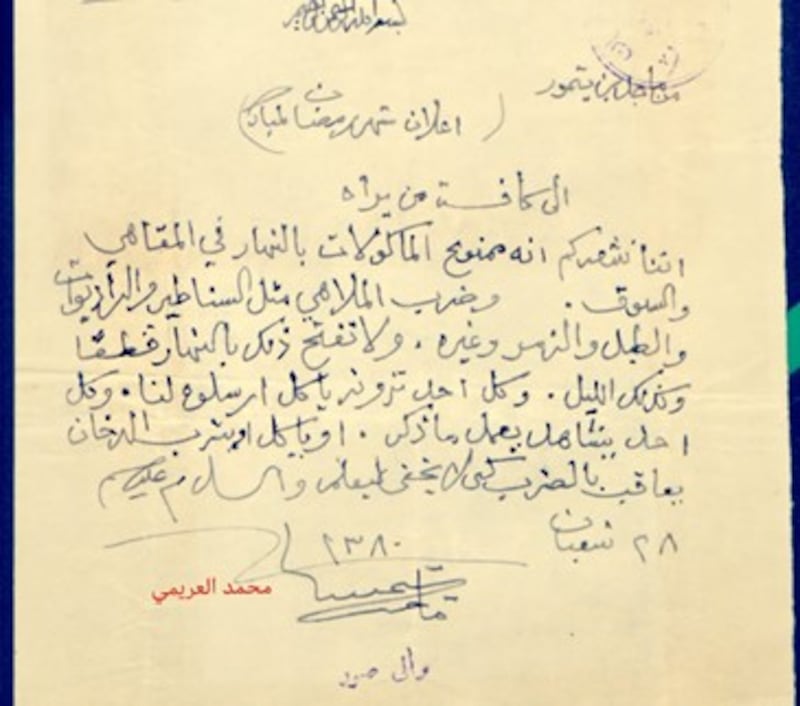 بسم الله الرحمن الرحيم
من ماجد بن تيمور
( اعلان شهر رمضان المبارك )
الى كافة من يراه
اننا نشعركم انه ممنوع الماكولات بالنهار في المقاهي
والسوق . وضرب الملاهي مثل السناطير والراديوات
والطبل والزمر وغيره . ولا تفتح ذلك بالنهار قطعًا
وكذلك الليل . وكل احد ترونه ياكل ارسلوه لنا . وكل
احد يشاهد يعمل ما ذكر . او ياكل او يشرب الدخان
يعاقب بالضرب لكي لا يخفى ليعلم والسلام عليكم
٢٨ شعبان
١٣٨٠
محمد العريمي
والي صور